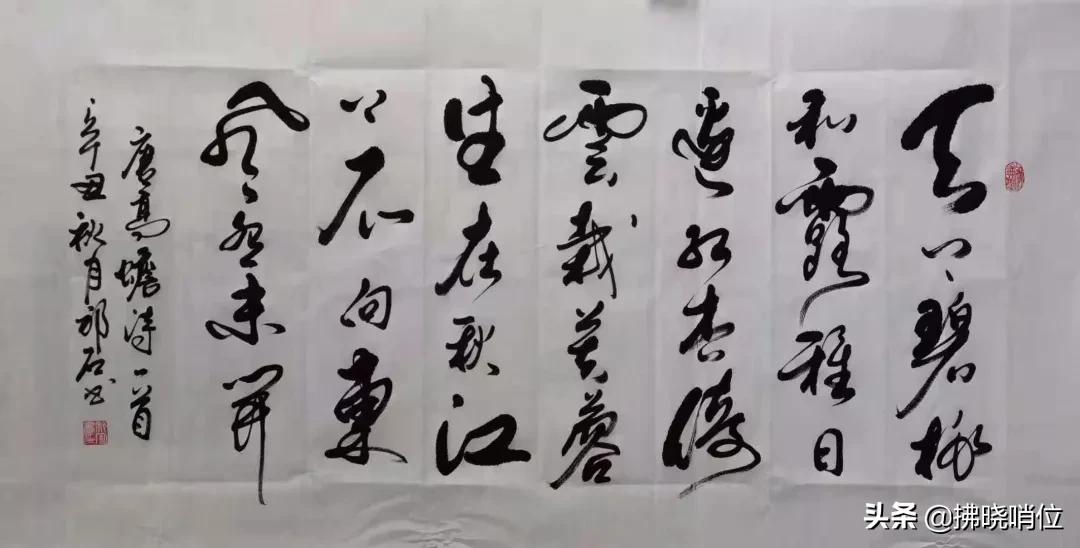 天上碧桃
和露種日
邊紅杏倚
雲栽芙蓉
生在秋江
上不向東
風怨未開
唐高蟾詩一首
辛丑秋月石书
头条 @拂晓哨位